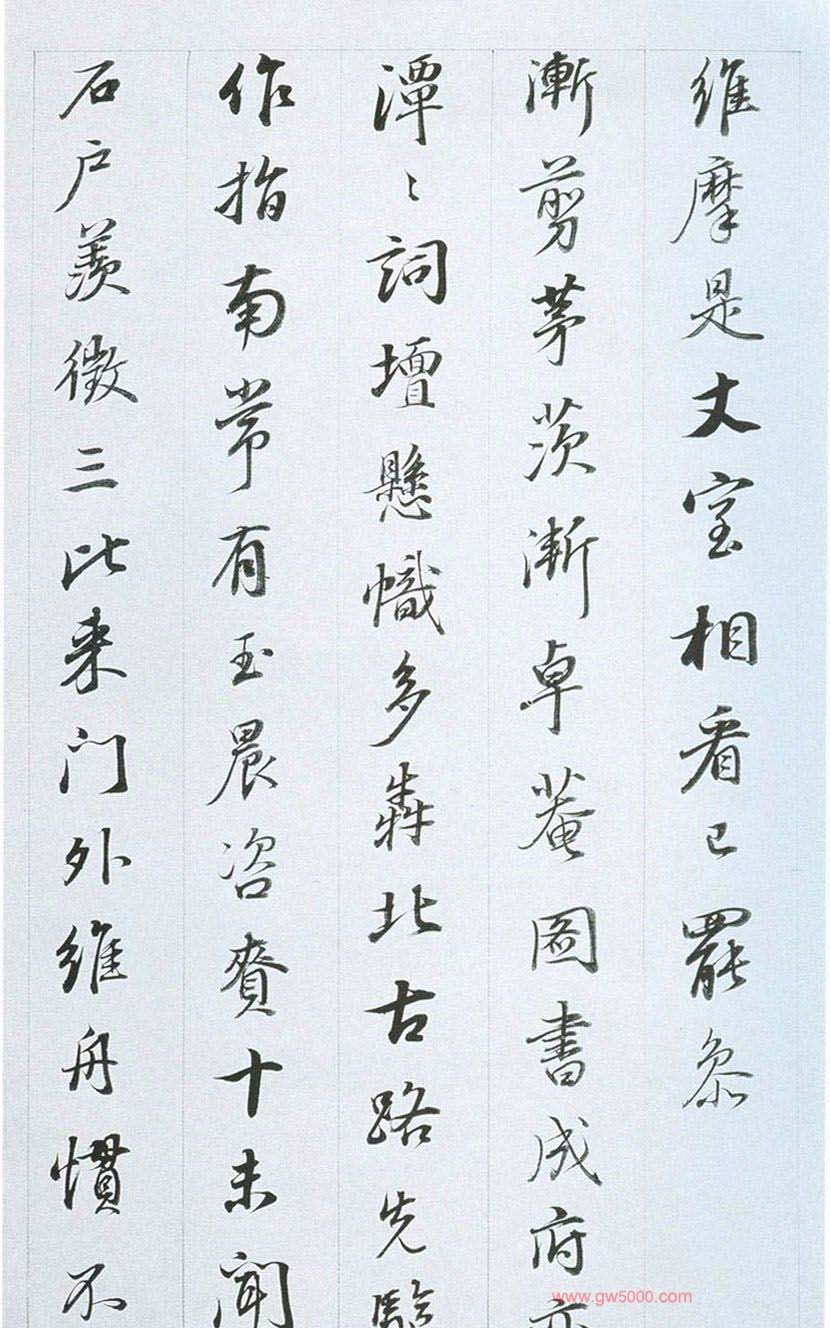 维摩是丈室相看已罷叅
漸剪茅茨漸卓菴圖書成府亦
潭〻詞壇懸幟多犇北古路先
作指南常有玉晨咨賚十未聞
石户羡徵三比来门外維舟慣不
www.gw5000.com